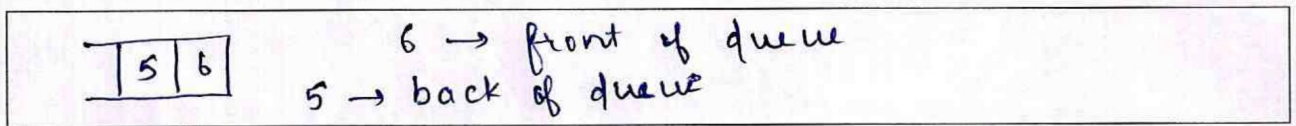 5 6
6 → front of queue
5 → back of queue